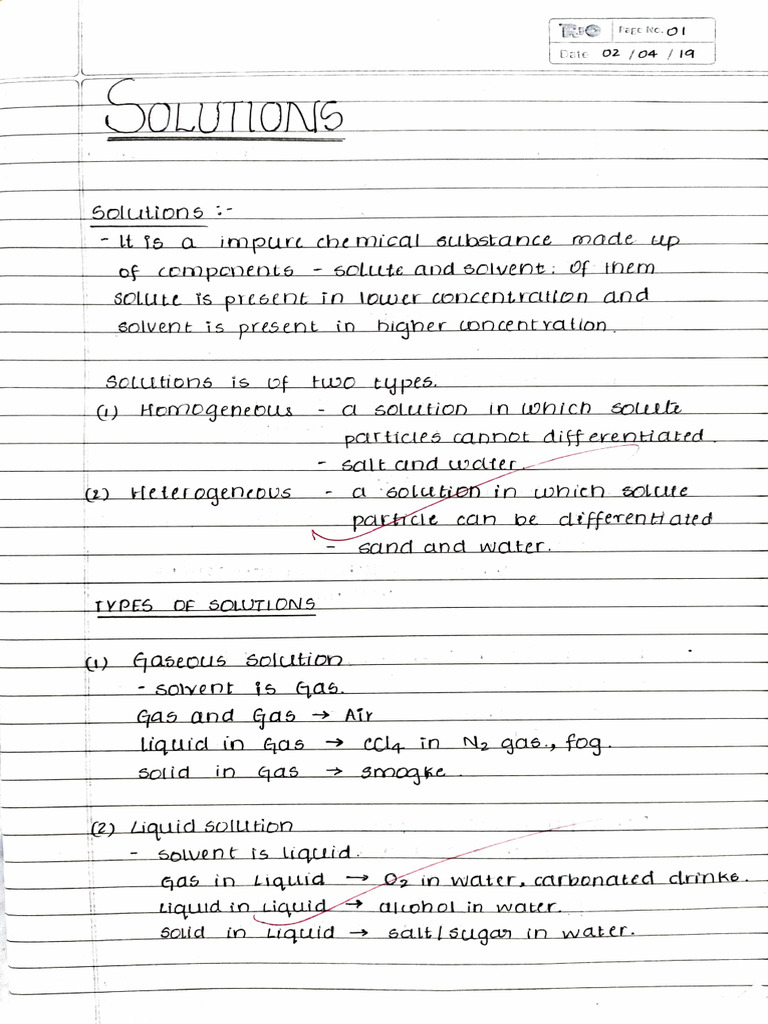 Page No. 01
Date 02 / 04 / 19
SOLUTIONS
Solutions :-
- It is a impure chemical substance made up
of components - solute and solvent. Of them
solute is present in lower concentration and
solvent is present in higher concentration.
Solutions is of two types.
(1) Homogeneous - a solution in which solute
particles cannot differentiated.
- salt and water.
(2) Heterogeneous - a solution in which solute
particle can be differentiated
- sand and water.
TYPES OF SOLUTIONS
(1) Gaseous solution
- solvent is Gas.
Gas and Gas → Air
liquid in Gas → CCl4 in N2 gas., fog.
solid in Gas → smogke.
(2) Liquid solution
- solvent is liquid.
Gas in Liquid → O2 in water, carbonated drinks.
liquid in liquid → alcohol in water.
solid in liquid → salt/sugar in water.